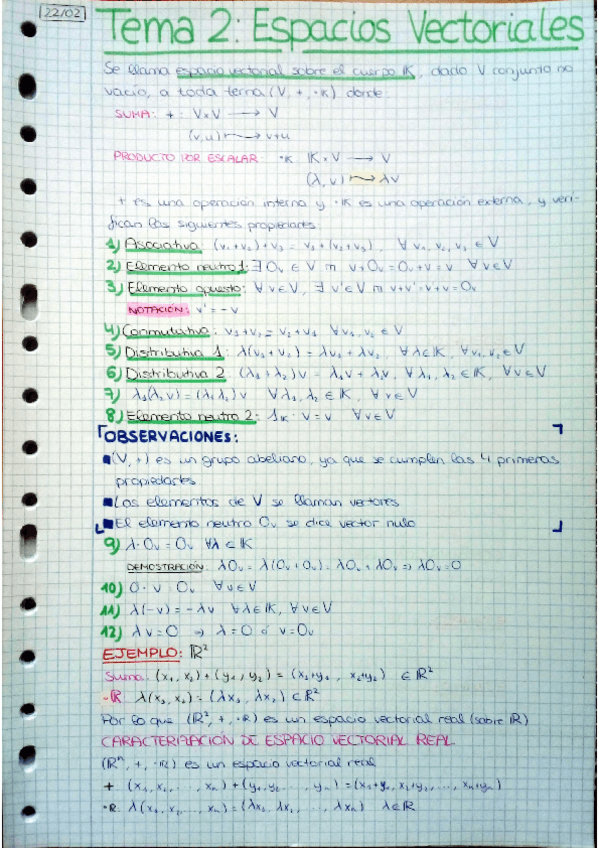 22/02
Tema 2: Espacios Vectoriales
Se llama espacio vectorial sobre el cuerpo K, dado V conjunto no
vacío, a toda terna (V, +, ·K) donde:
SUMA: + : V×V → V
(v,u) ⟿ v+u
PRODUCTO POR ESCALAR: ·K K×V → V
(λ, v) ⟿ λv
+ es una operación interna y ·K es una operación externa, y veri-
fican las siguientes propiedades:
1) Asociativa: (v₁+v₂)+v₃ = v₁+(v₂+v₃), ∀ v₁, v₂, v₃ ∈ V
2) Elemento neutro 1: ∃ 0ᵥ ∈ V m v+0ᵥ = 0ᵥ+v = v ∀v∈V
3) Elemento opuesto: ∀v∈V, ∃ v'∈V m v+v' = v'+v = 0ᵥ
NOTACIÓN: v' = -v
4) Conmutativa: v₁+v₂ = v₂+v₁ ∀v₁, v₂ ∈ V
5) Distributiva 1: λ(v₁+v₂) = λv₁+λv₂, ∀λ∈K, ∀v₁, v₂∈V
6) Distributiva 2: (λ₁+λ₂)v = λ₁v+λ₂v, ∀λ₁, λ₂ ∈ K, ∀v∈V
7) λ₁(λ₂v) = (λ₁λ₂)v ∀λ₁, λ₂ ∈ K, ∀v∈V
8) Elemento neutro 2: 1K · v = v ∀v∈V
OBSERVACIONES:
(V, +) es un grupo abeliano, ya que se cumplen las 4 primeras
propiedades
Los elementos de V se llaman vectores
El elemento neutro 0ᵥ se dice vector nulo
9) λ·0ᵥ = 0ᵥ ∀λ∈K
DEMOSTRACIÓN: λ0ᵥ = λ(0ᵥ+0ᵥ) = λ0ᵥ+λ0ᵥ ⇒ λ0ᵥ = 0
10) 0·v = 0ᵥ ∀v∈V
11) λ(-v) = -λv ∀λ∈K, ∀v∈V
12) λv = 0 ⇒ λ=0 ó v=0ᵥ
EJEMPLO: R²
Suma: (x₁, x₂)+(y₁, y₂) = (x₁+y₁, x₂+y₂) ∈ R²
·R λ(x₁, x₂) = (λx₁, λx₂) ∈ R²
Por lo que (R², +, ·R) es un espacio vectorial real (sobre R)
CARACTERIZACIÓN DE ESPACIO VECTORIAL REAL
(Rⁿ, +, ·R) es un espacio vectorial real
+ (x₁, x₂, ..., xₙ)+(y₁, y₂, ..., yₙ) = (x₁+y₁, x₂+y₂, ..., xₙ+yₙ)
·R λ(x₁, x₂, ..., xₙ) = (λx₁, λx₂, ..., λxₙ) λ∈R